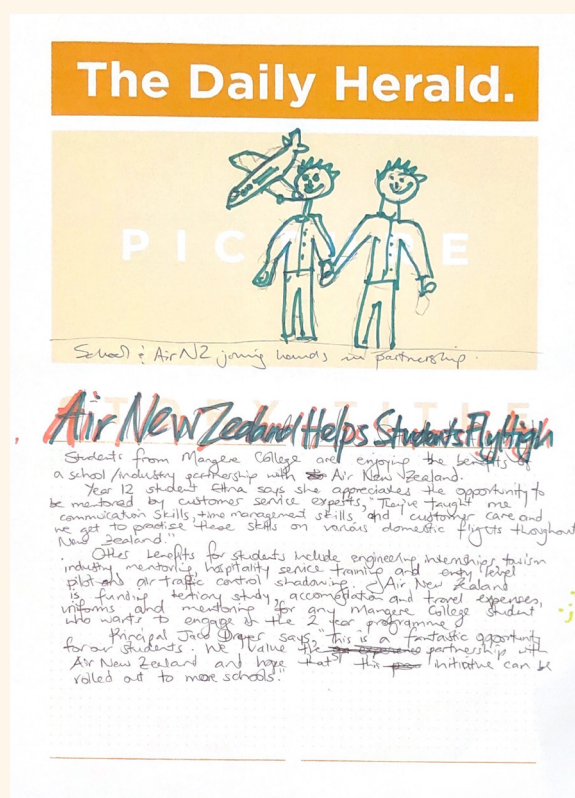 The Daily Herald.
PICTURE
School & Air NZ joining hands in partnership.
STORY TITLE
Air New Zealand Helps Students Fly High
Students from Mangere College are enjoying the benefits of
a school/industry partnership with Air New Zealand.
Year 12 student Etna says she appreciates the opportunity to
be mentored by customer service experts. "They've taught me
commuication skills, time management skills and customer care and
we get to practise these skills on various domestic flights throughout
New Zealand."
Other benefits for students include engineering internships tourism
industry mentoring, hospitality service training and entry level
pilot and air traffic control shadowing. Air New Zealand
is funding tertiary study, accomodation and travel expenses,
uniforms and mentoring for any Mangere College student
who wants to engage in the 2 year programme.
Principal Jaco Draper says, "This is a fantastic opportunity
for our students. We value the partnership with
Air New Zealand and hope that this initiative can be
rolled out to more schools."